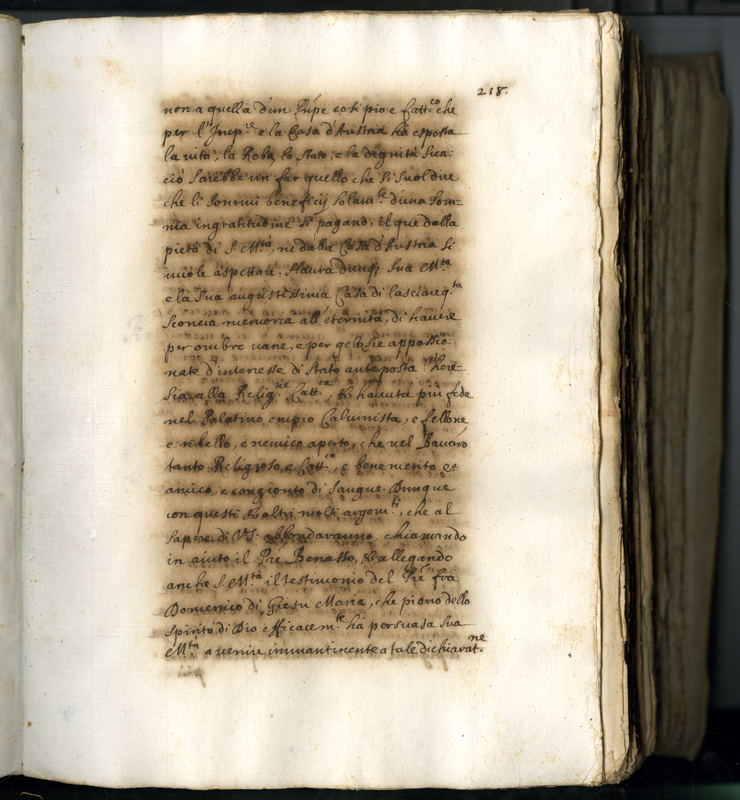 218.
non a quella d'un Prípe così pio e Catt.co che
per l'Imp.re e la Casa d'Austria ha esposta
la vita, la Roba, lo Stato, e la dignità sua:
ciò sarebbe un far quello che si suol dire
che li sommi beneficij solam.te d'una som-
ma ingratitudine si pagano, il que dalla
pietà di S. M.tà, nè dalla Casa d'Austria si
vuole aspettare. Sua M.tà
e la sua augustissima Casa di lasciare q.ta
sconcia memoria all'eternità, di havere
per ombre vane, e per gelosie appossio-
nate d'interesse di Stato anteposta l'here-
sia alla Relig.ne Catt.ca, et havuta più fede
nel Palatino empio Calvinista, e fellone
e ribello, e nemico aperto, che nel Bavaro
tanto Religioso, e Catt.co, e benemerito et
amico, e congionto di sangue. Dunque
con questi et altri molti argom.ti, che al
sapere di V.S. abbondaranno, chiamando
in aiuto il Prē Benasso, et allegando
anche S. M.tà il testimonio del Prē fra
Domenico di Giesu Maria, che pieno dello
spirito di Dio efficacem.te ha persuasa sua
M.tà a venire immantinente a tale dichiarat.ne